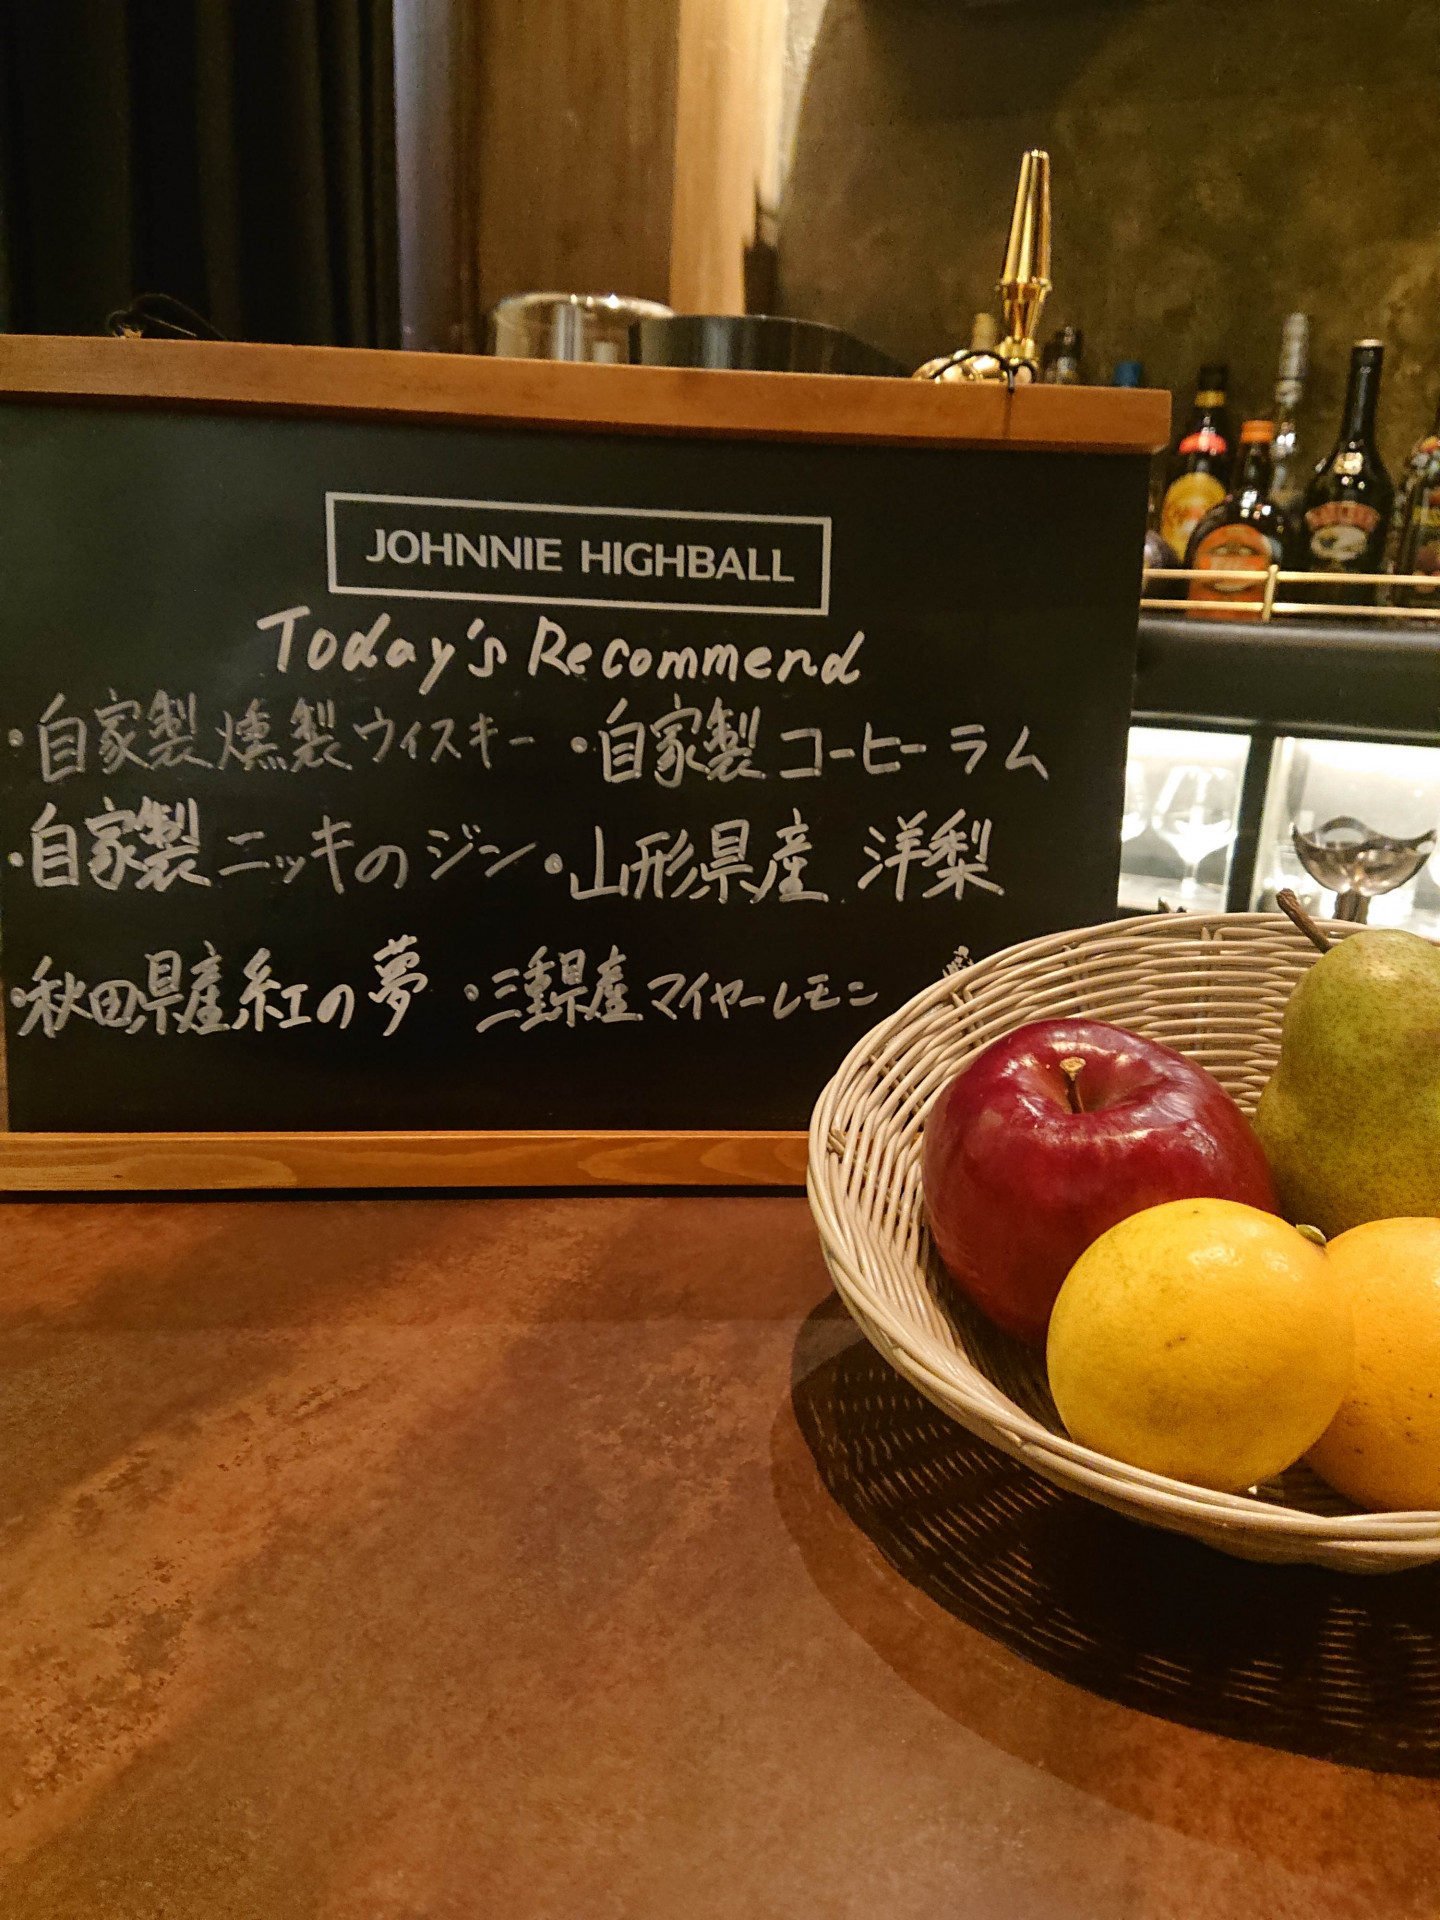 JOHNNIE HIGHBALL
Today's Recommend
・自家製燻製ウィスキー ・自家製コーヒーラム
・自家製ニッキのジン ・山形県産 洋梨
・秋田県産紅の夢 ・三重県産マイヤーレモン